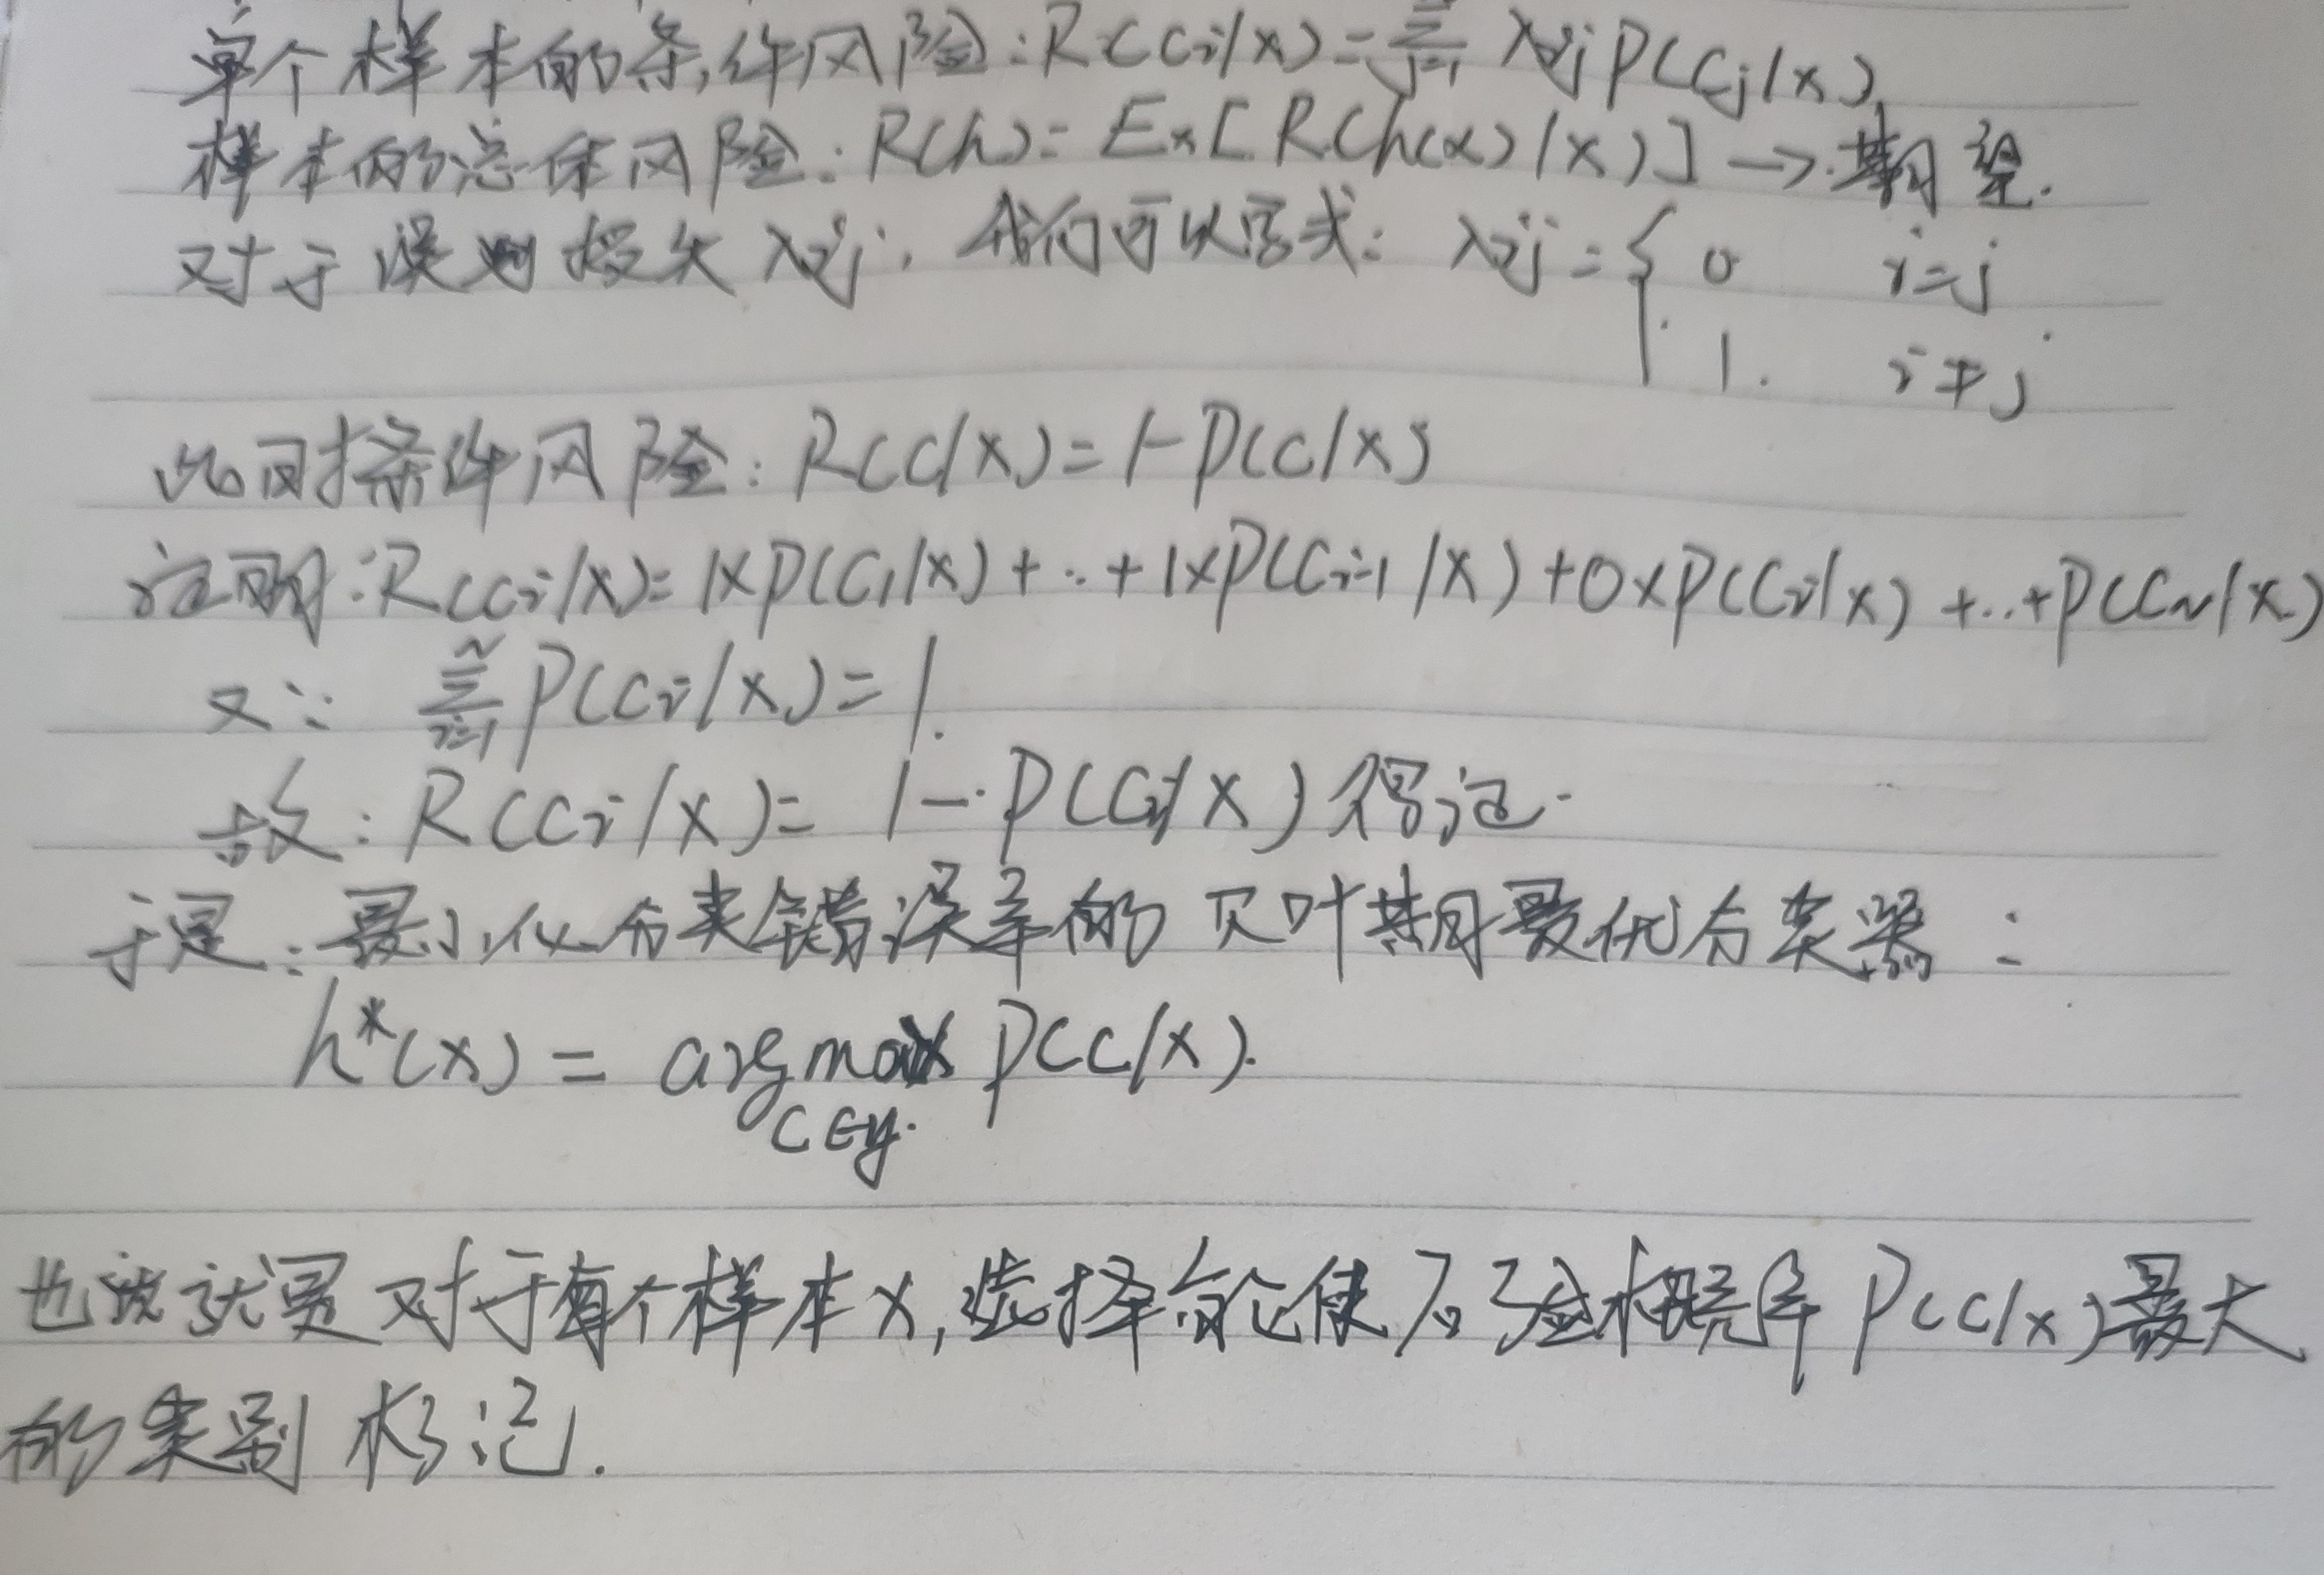 单个样本的条件风险:R(Ci|x)=∑j=1 λij P(Cj|x)
样本的总体风险:R(h)=Ex[R(h(x)|x)]→期望.
对于误判损失λij,我们可以写成:λij={0 i=j
1. i≠j
此时条件风险:R(C|x)=1-P(C|x)
证明:R(Ci|x)=1×P(C1|x)+..+1×P(Ci-1|x)+0×P(Ci|x)+..+P(CN|x)
又∵ N∑i=1 P(Ci|x)=1.
故:R(Ci|x)=1-P(Ci|x)得证.
于是:最小化分类错误率的贝叶斯最优分类器:
h*(x)=argmax P(C|x).
C∈y.
也就是对于每个样本x,选择能使后验概率P(C|x)最大
的类别标记.